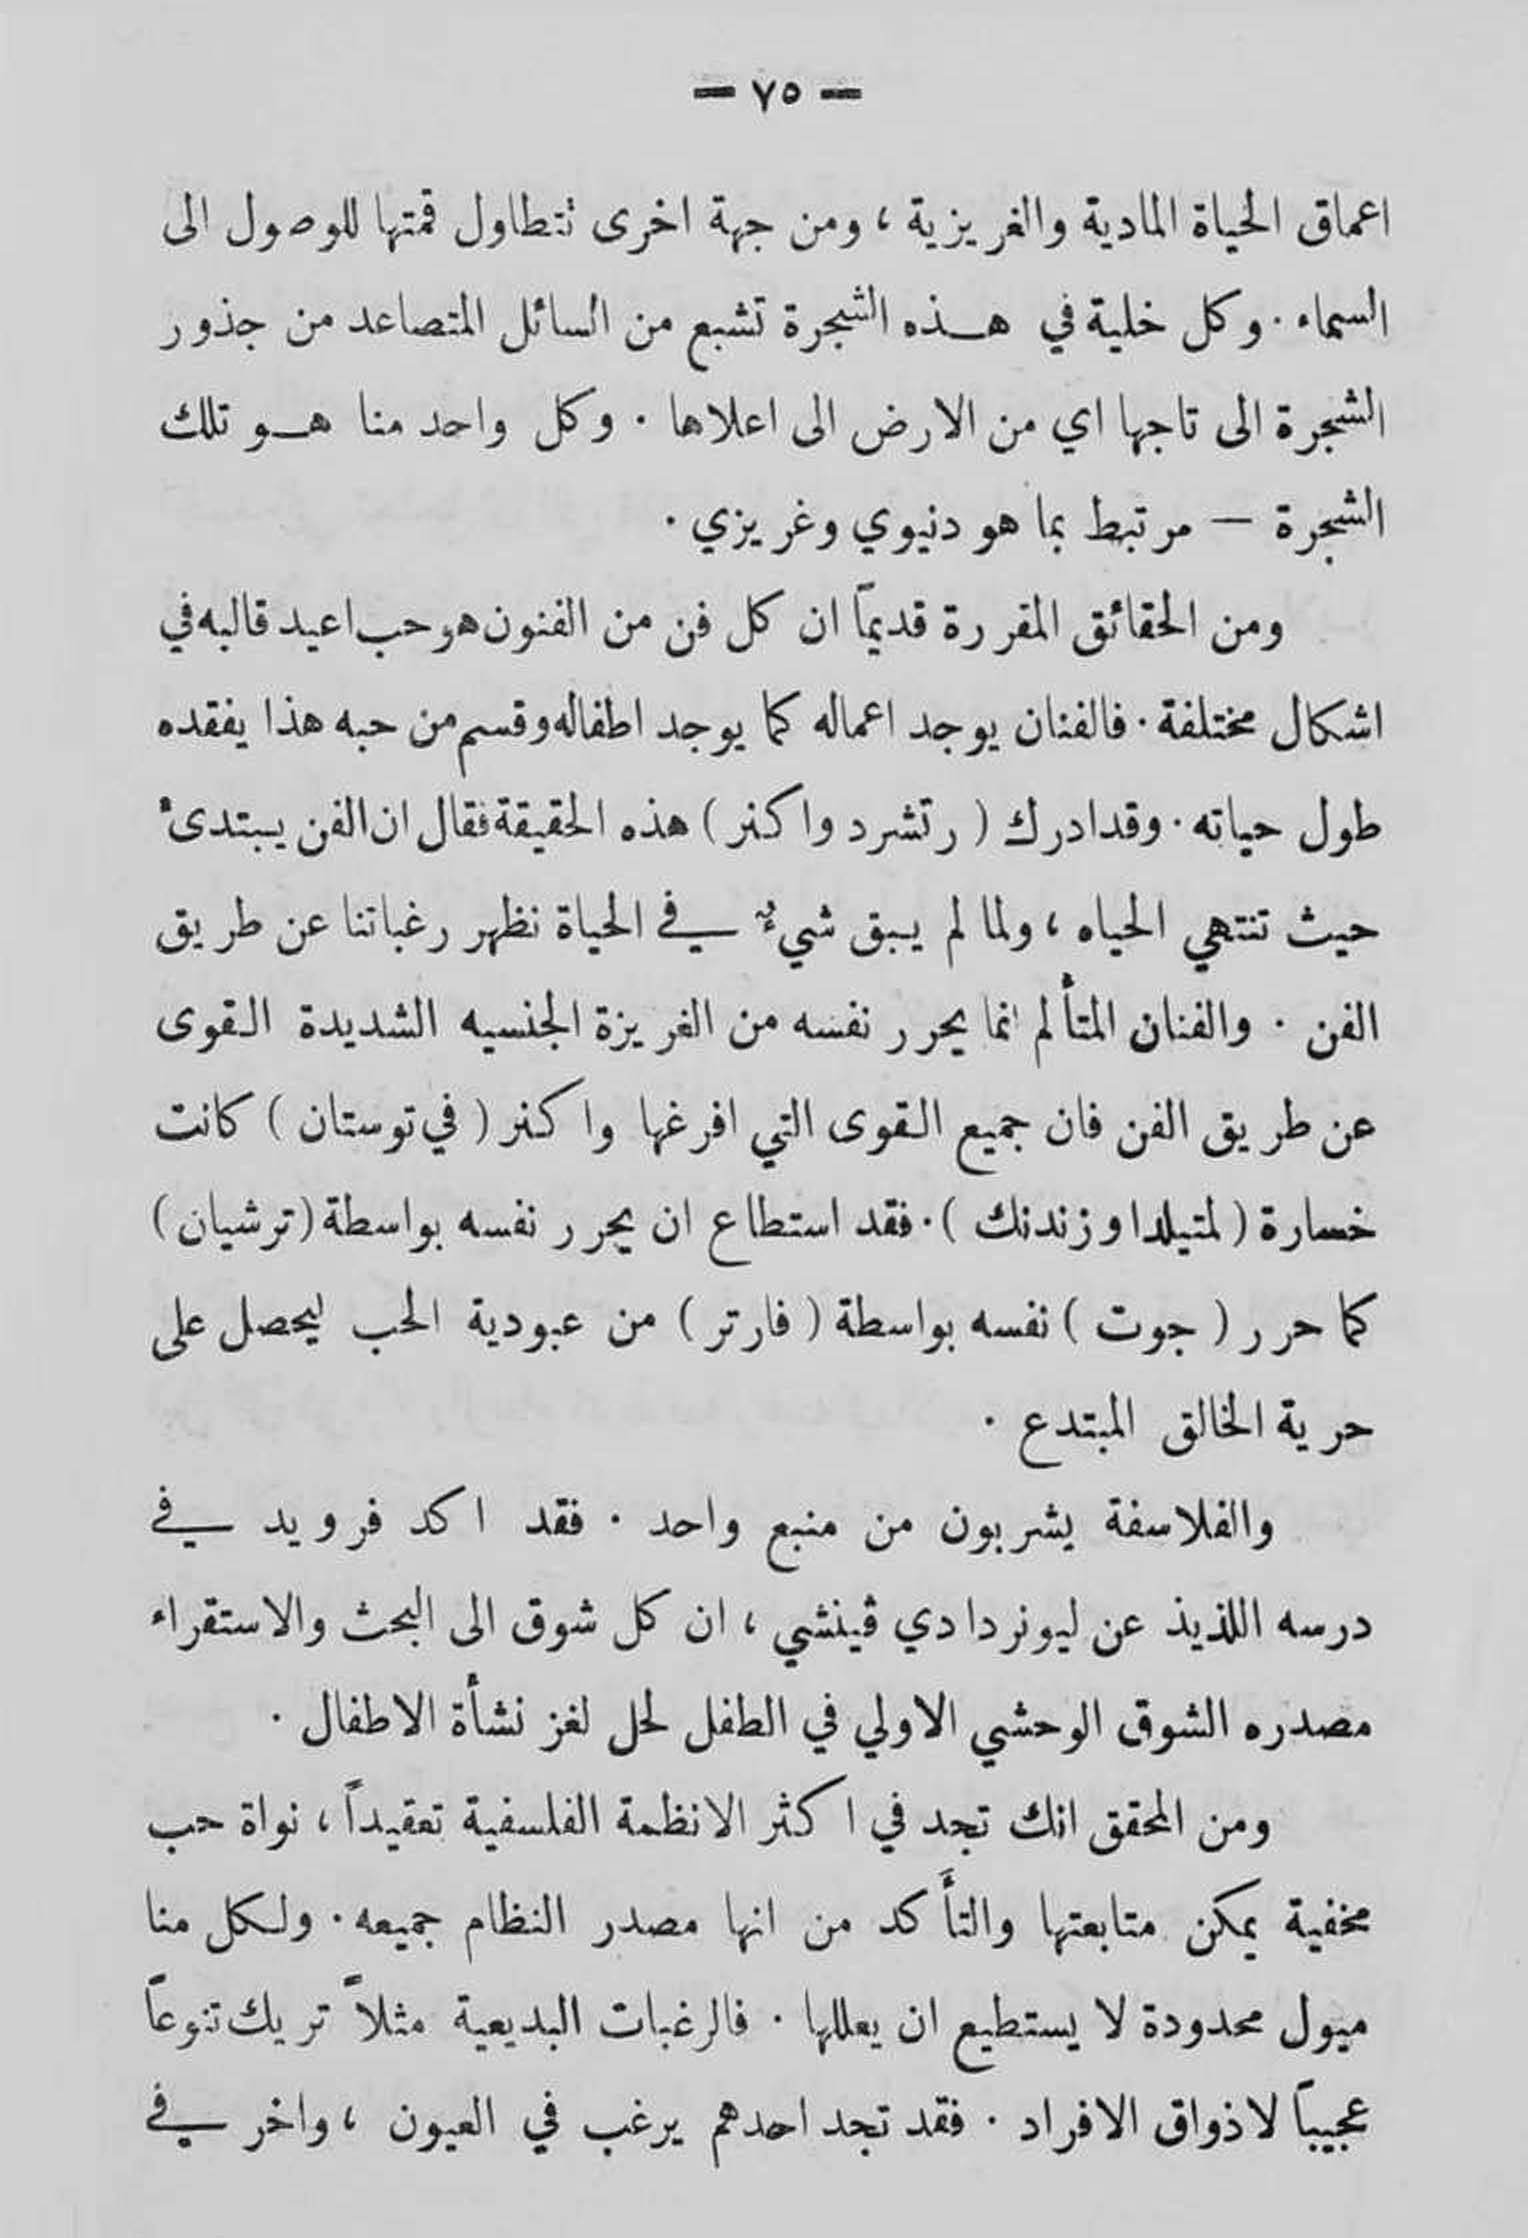 — ٧٥ —
اعماق الحياة المادية والغريزية ، ومن جهة اخرى تتطاول قمتها للوصول الى
السماء . وكل خلية في هـذه الشجرة تشبع من السائل المتصاعد من جذور
الشجرة الى تاجها اي من الارض الى اعلاها . وكل واحد منا هـو تلك
الشجرة — مرتبط بما هو دنيوي وغريزي .
ومن الحقائق المقررة قديماً ان كل فن من الفنون هو حب اعيد قالبه في
اشكال مختلفة . فالفنان يوجد اعماله كما يوجد اطفاله وقسم من حبه هذا يفقده
طول حياته . وقد ادرك ( رتشرد واكنر ) هذه الحقيقة فقال ان الفن يبتدىء
حيث تنتهي الحياه ، ولما لم يبق شيءٌ في الحياة نظهر رغباتنا عن طريق
الفن . والفنان المتألم انما يحرر نفسه من الغريزة الجنسيه الشديدة القوى
عن طريق الفن فان جميع القوى التي افرغها واكنر ( في توستان ) كانت
خسارة ( لمتيلدا وزندنك ) . فقد استطاع ان يحرر نفسه بواسطة ( ترشيان )
كما حرر ( جوت ) نفسه بواسطة ( فارتر ) من عبودية الحب ليحصل على
حرية الخالق المبتدع .
والفلاسفة يشربون من منبع واحد . فقد اكد فرويد في
درسه اللذيذ عن ليونردا دي ڤينشي ، ان كل شوق الى البحث والاستقراء
مصدره الشوق الوحشي الاولي في الطفل لحل لغز نشأة الاطفال .
ومن المحقق انك تجد في اكثر الانظمة الفلسفية تعقيداً ، نواة حب
مخفية يمكن متابعتها والتأكد من انها مصدر النظام جميعه . ولكل منا
ميول محدودة لا يستطيع ان يعللها . فالرغبات البديعية مثلاً تريك تنوعاً
عجيباً لاذواق الافراد . فقد تجد احدهم يرغب في العيون ، واخر في